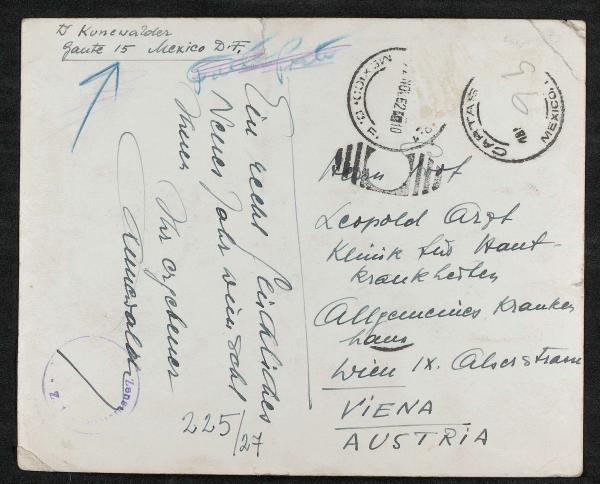 Dr Kunewalder
Gante 15 Mexico D.F.
MEXICO, D.F.
NOV. 52
CARTAS
MEXICO
Ein recht
Neues Jahr wünscht
Ihnen
Ihr ergebener
Kunewalder
Herrn Prof
Leopold Arzt
Klinik für Haut-
krankheiten
Allgemeines Kranken
haus
Wien IX. Alserstrasse
VIENA
AUSTRIA
225/27